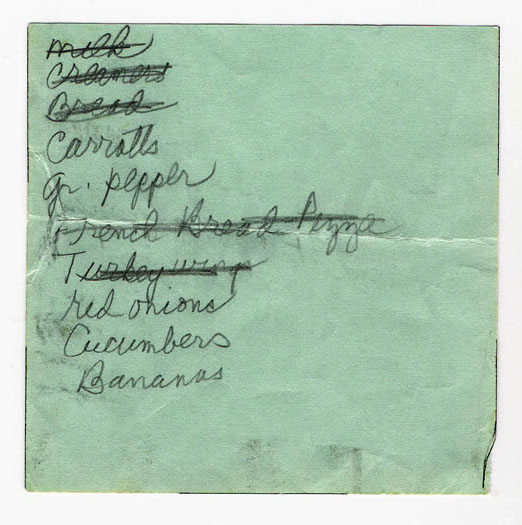 milk
Creamers
Bread
Carrotts
gr. pepper
French Bread Pizza
Turkey wings
red onions
Cucumbers
Bananas